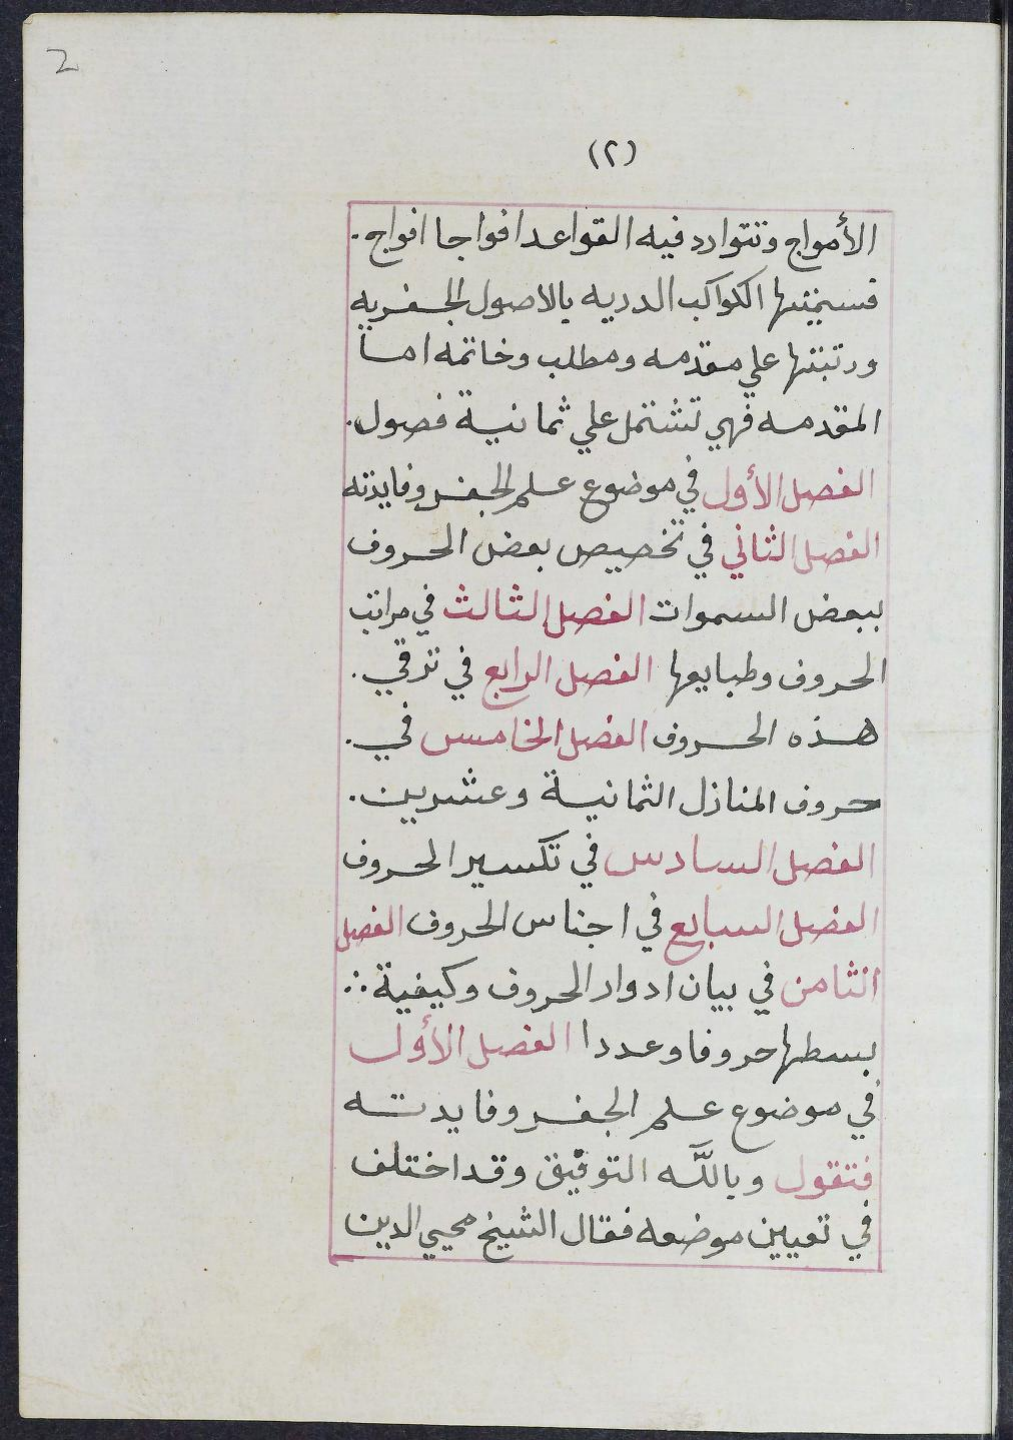 2
(٢)
الأمواج وتتوارد فيه القواعد افواجا افواج.
فسميتها الكواكب الدريه بالاصول الجفريه
ورتبتها علي مقدمه ومطلب وخاتمه اما
المقدمه فهي تشتمل علي ثمانية فصول.
الفصل الأول في موضوع علم الجفر وفايدته
الفصل الثاني في تخصيص بعض الحروف
ببعض السموات الفصل الثالث في مراتب
الحروف وطبايعها الفصل الرابع في ترقي.
هذه الحروف الفصل الخامس في.
حروف المنازل الثمانية وعشرين.
الفصل السادس في تكسير الحروف
الفصل السابع في اجناس الحروف الفصل
الثامن في بيان ادوار الحروف وكيفية ∴
بسطها حروفا وعددا الفصل الأول
في موضوع علم الجفر وفايدته
فتقول وبالله التوفيق وقد اختلف
في تعيين موضعه فقال الشيخ محيي الدين